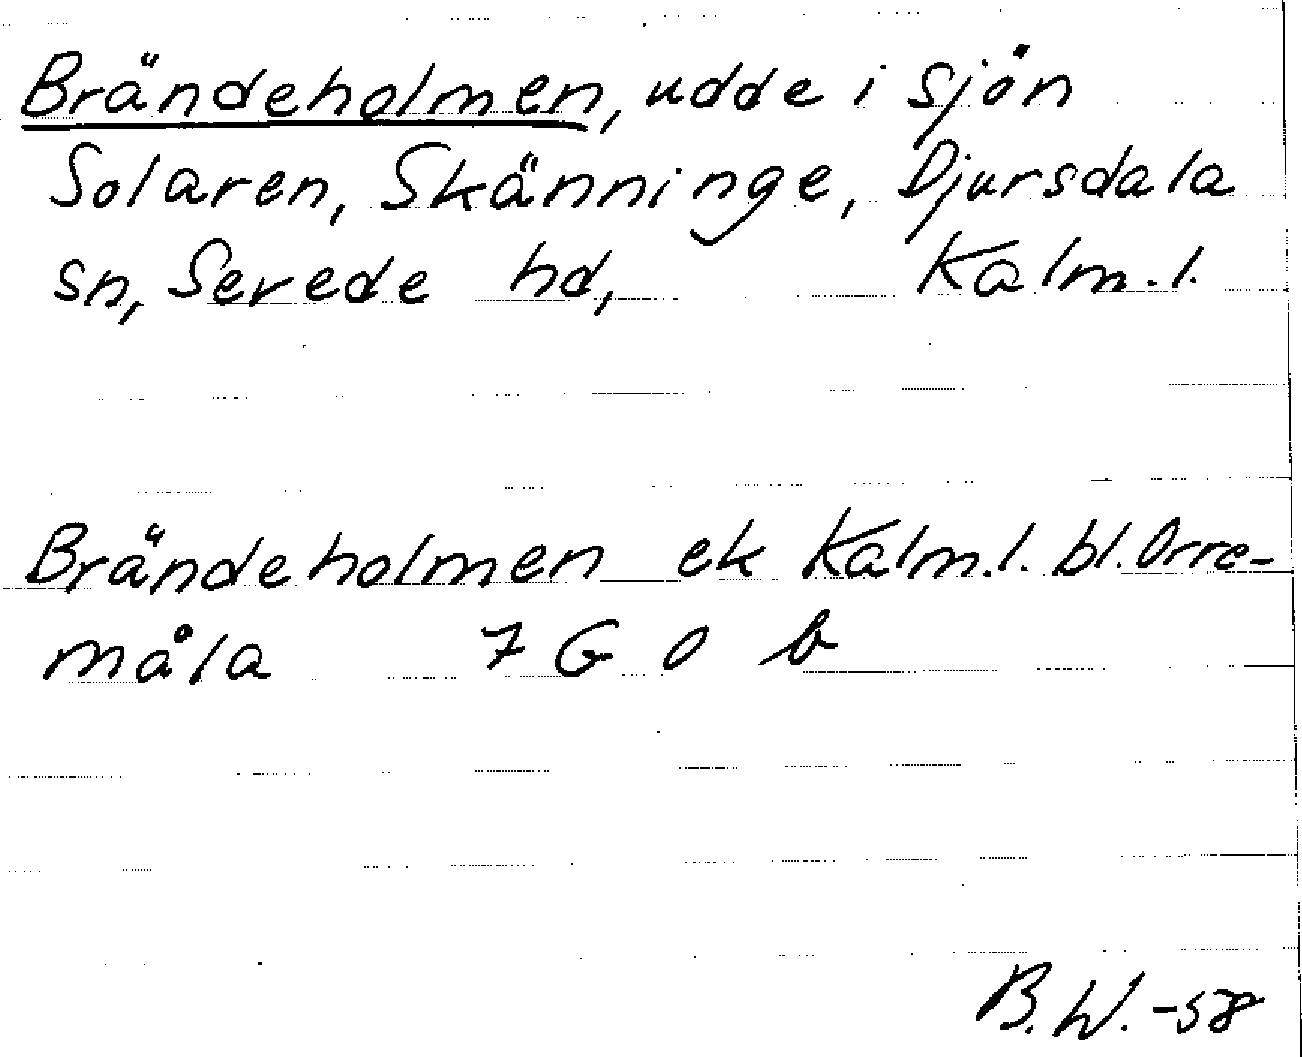 Brändeholmen, udde i sjön
Solaren, Skänninge, Djursdala
sn, Sevede hd, Kalm.l.
Brändeholmen ek Kalm.l. bl. Orre-
måla 7 G 0 b
B.W. -58